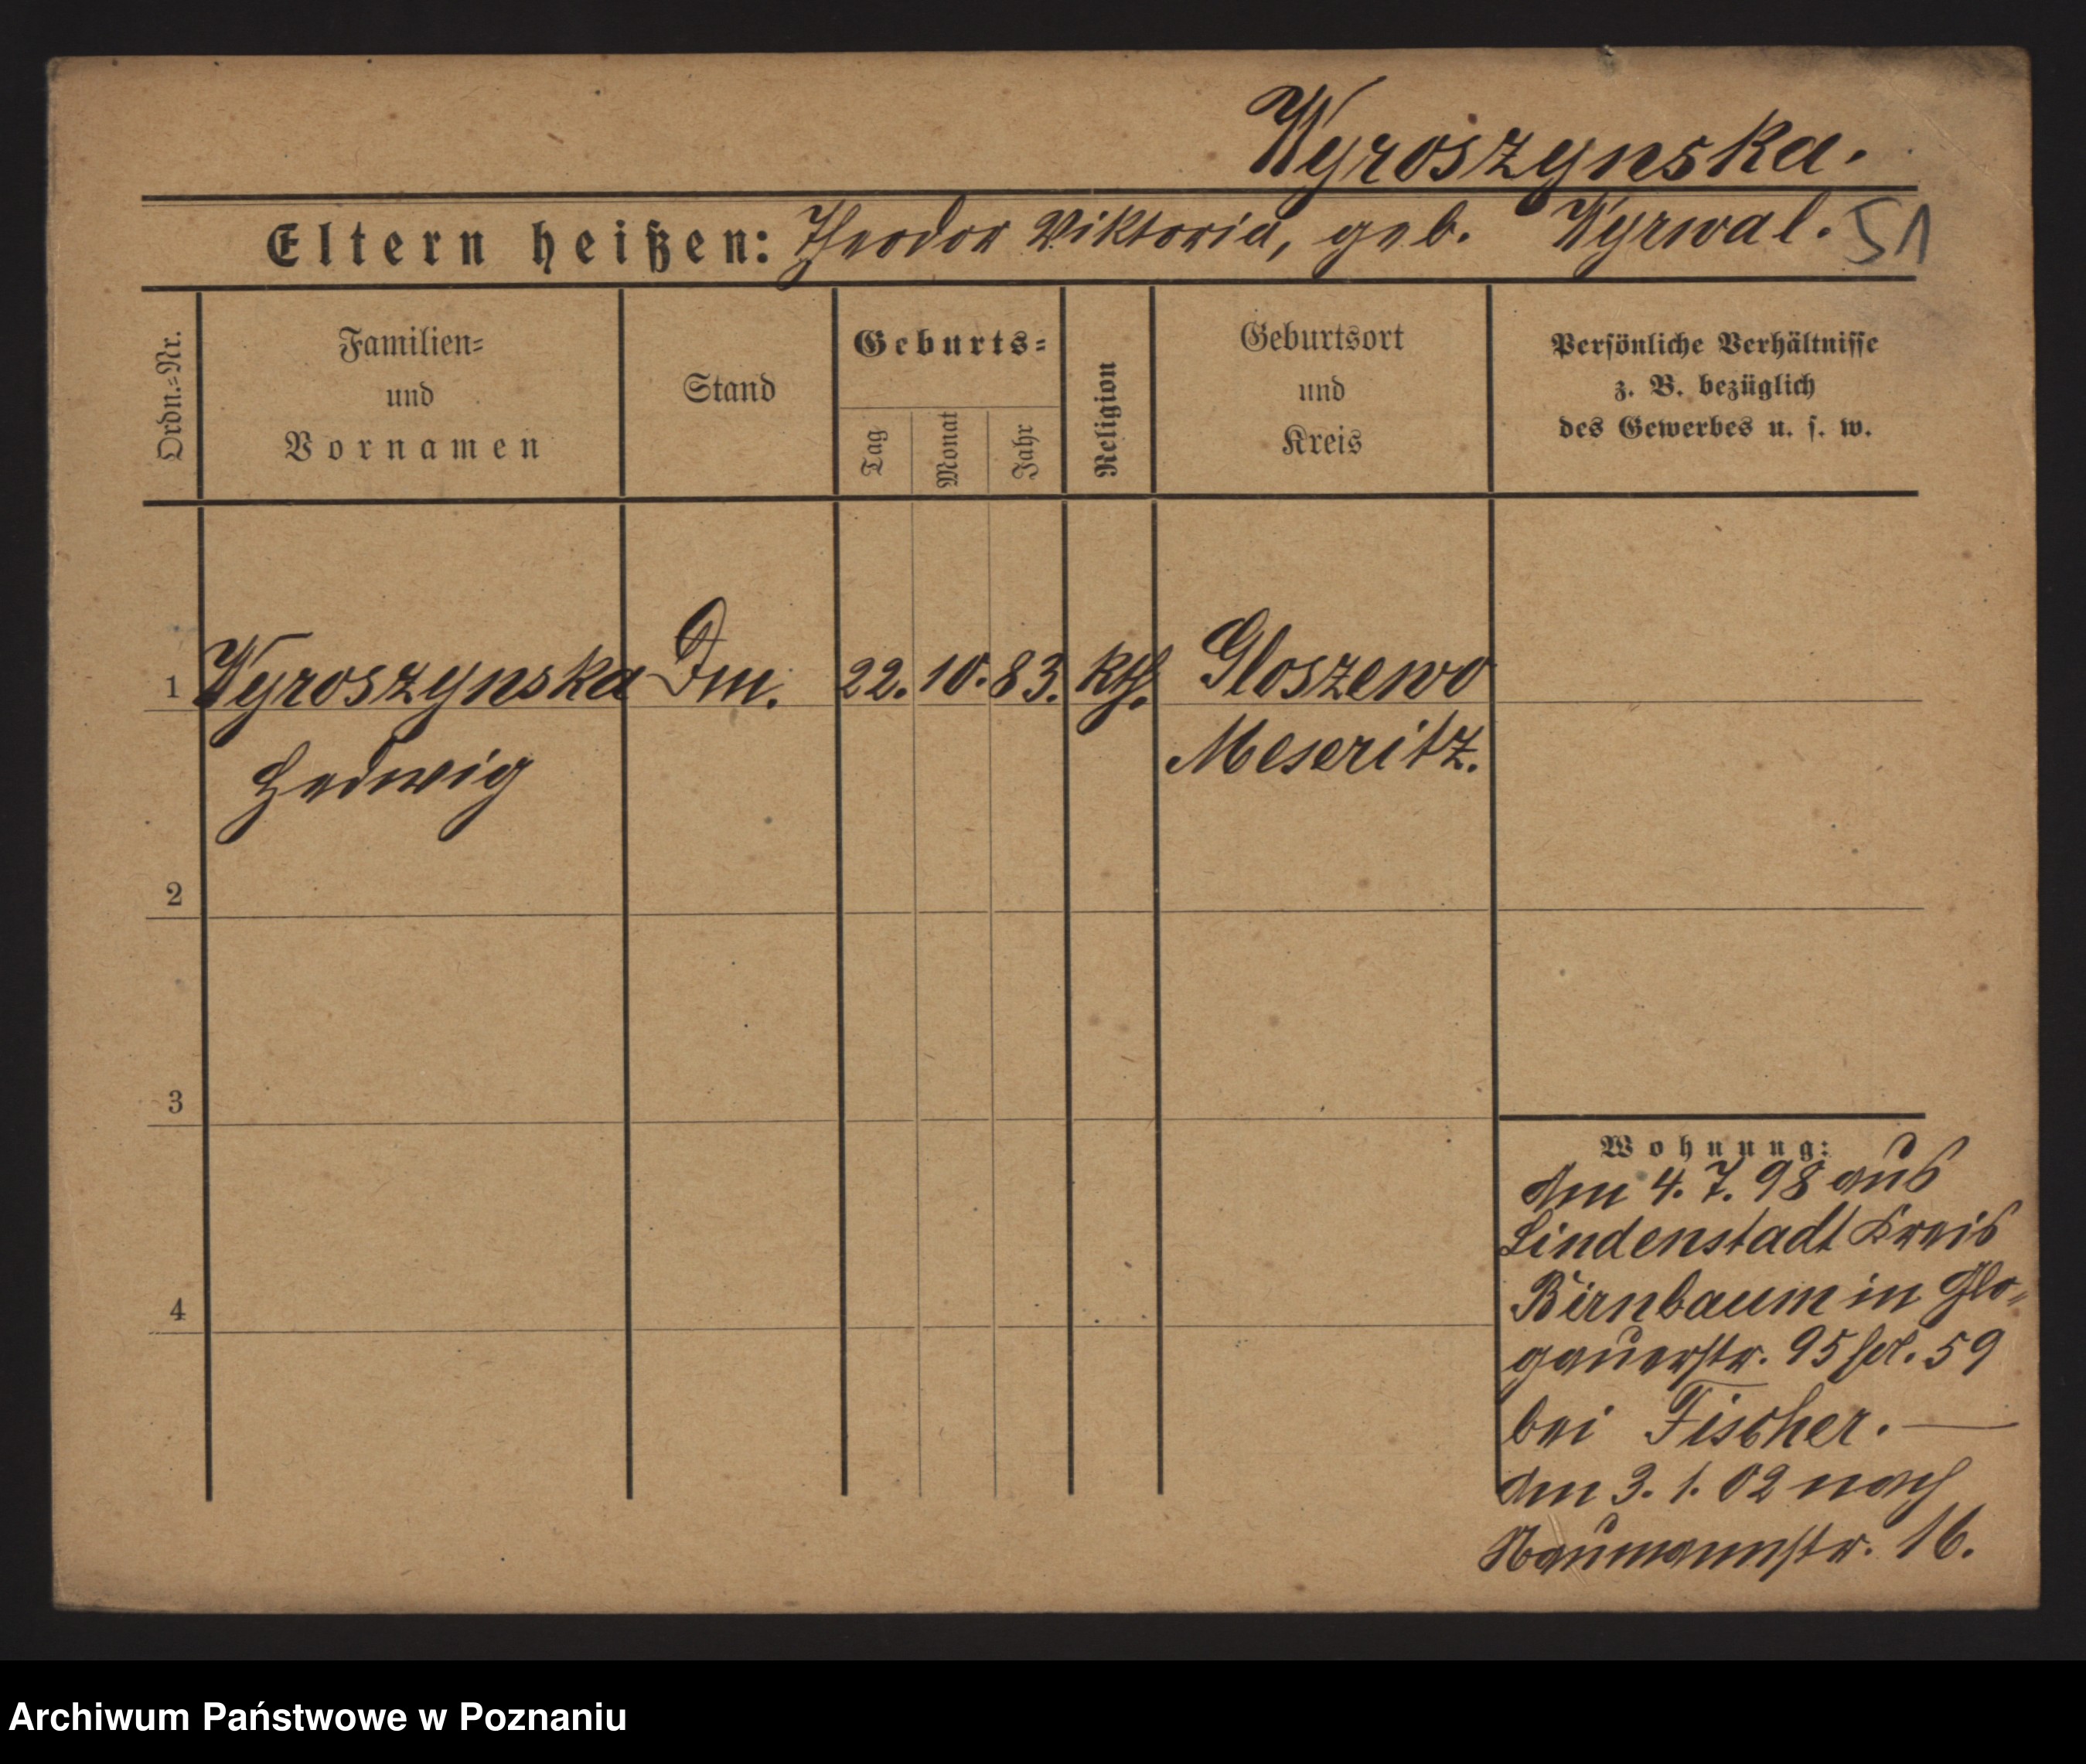 Wyroszynska.
Eltern heißen: Theodor Viktoria, geb. Wyrwal. 51
Ordn.=Nr.
Familien=
und
Vornamen
Stand
Geburts=
Tag
Monat
Jahr
Religion
Geburtsort
und
Kreis
Persönliche Verhältnisse
z. B. bezüglich
des Gewerbes u. s. w.
1 Wyroszynska Dm. 22. 10. 83. kth. Gloszewo
Hedwig Meseritz.
2
3
4
Wohnung:
den 4. 7. 98 aus
Lindenstadt Kreis
Birnbaum in Glo=
gauerstr. 95 59
bei Fischer. —
den 3. 1. 02 nach
Naumannstr. 16.
Archiwum Państwowe w Poznaniu